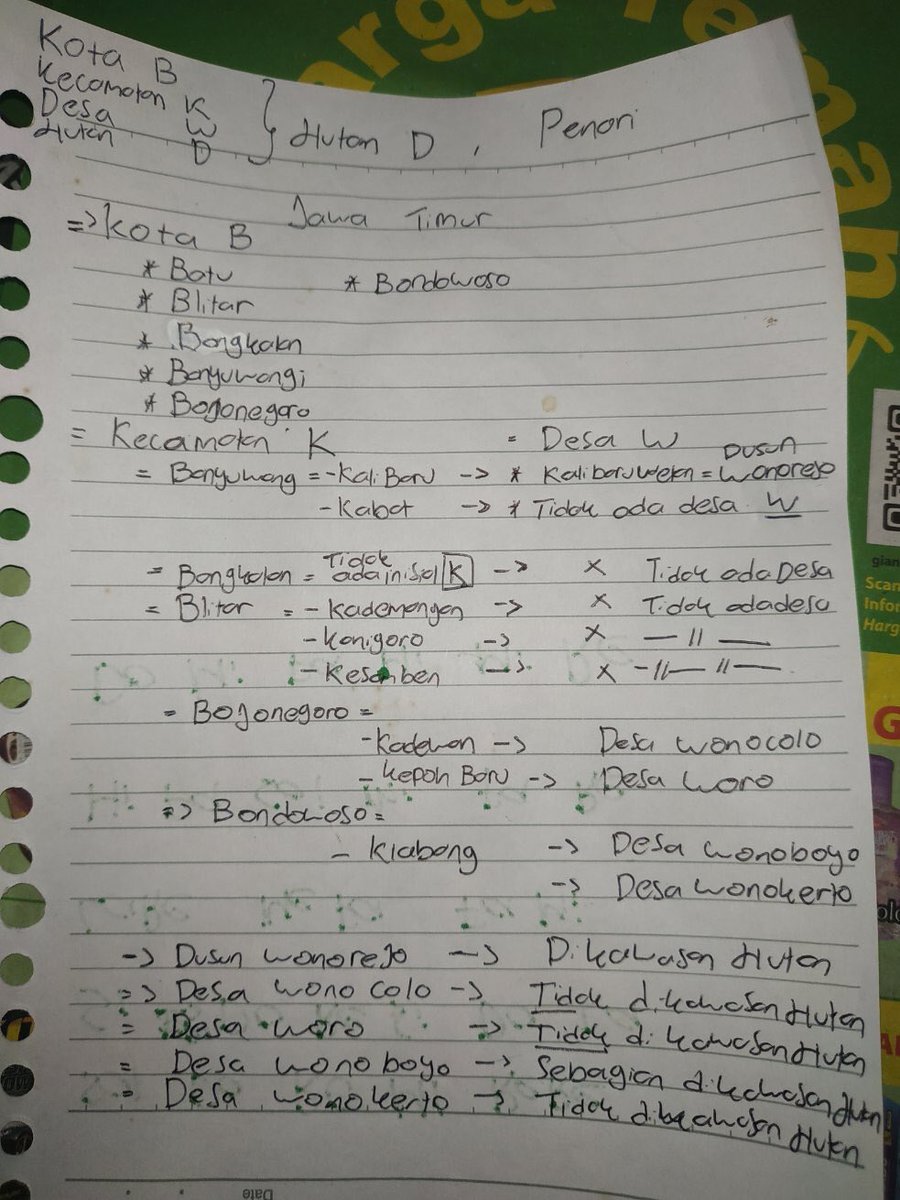 Kota B
Kecamatan K
Desa W
Hutan D } Hutan D , Penari
Jawa Timur
=> Kota B
* Batu * Bondowoso
* Blitar
* Bangkalan
* Banyuwangi
* Bojonegoro
= Kecamatan K = Desa W
= Banyuwang = - KaliBaru -> * Kalibaruwetan = Dusun Wonorejo
- Kabat -> * Tidak ada desa W
= Bangkalan = Tidak ada inisial K -> x Tidak ada Desa
= Blitar = - Kademangan -> x Tidak ada desa
- Kanigoro -> x — // —
- Kesamben -> x - // — // —
= Bojonegoro =
- Kadewan -> Desa Wonocolo
- Kepoh Baru -> Desa Woro
=> Bondowoso =
- Klabang -> Desa Wonoboyo
-> Desa Wonokerto
-> Dusun Wonorejo -> Dikawasan Hutan
=> Desa Wono colo -> Tidak dikawasan Hutan
= Desa Woro -> Tidak di kawasan Hutan
= Desa Wonoboyo -> Sebagian dikawasan Hutan
= Desa Wonokerto -> Tidak dikawasan Hutan
Date
arga Teman
gian
Scan
Infor
Harg
G